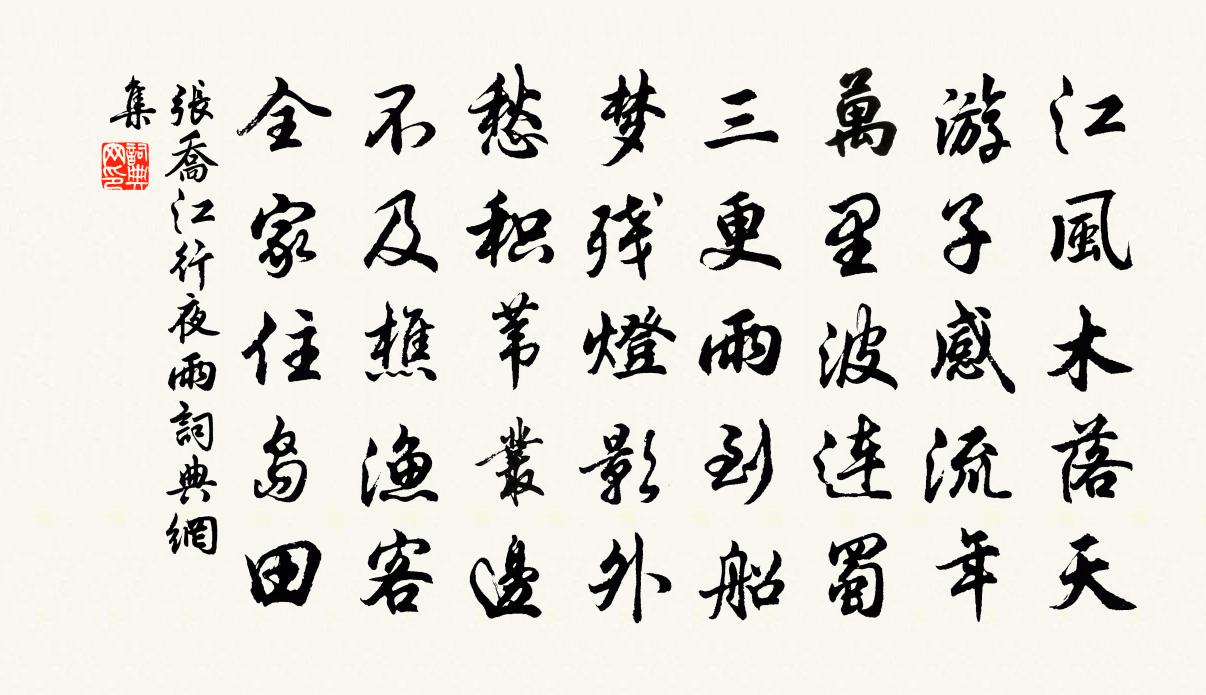 江風木落天
游子感流年
萬里波连蜀
三更雨到船
梦残燈影外
愁积苇叢邊
不及樵漁客
全家住島田
張喬江行夜雨詞典網
集
詞典
网印